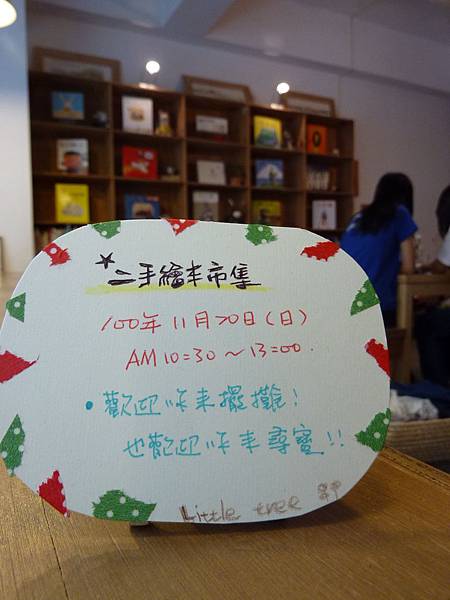 ★二手繪本市集
100年11月20日(日)
AM10:30~13:00.
•歡迎你来擺攤!
也歡迎你来尋寶!!
Little tree